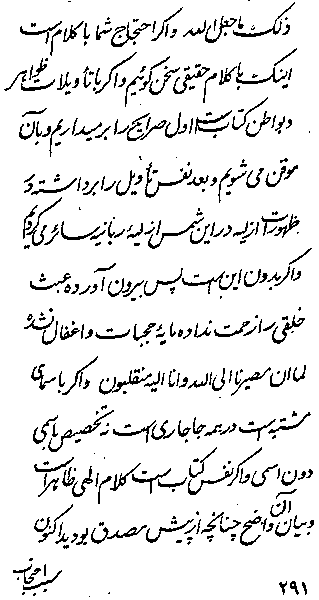 ذلک ما جعل الله و اگر احتجاج شما با کلام است
اینک با کلام حقیقی سخن گوئیم و اگر با تأویلات ظواهر
و بواطن کتاب است اول صرایح را بر میداریم و بآن
موقن می شویم و بعد نفس تأویل را بر داشته در
ظهورات ازلیه در این شمس ازلیه ربانیه سائر می گردیم
و اگر بدون این است پس بیرون آورده عبث
خلقی را زحمت نداده مایهٔ حجبات و اغفال نشده
لما ان مصیرنا الی الله و انا الیه منقلبون و اگر با سمای
مشتبه است در همه جا جاری است نه تخصیص باسمی
دون اسمی و اگر نفس کتاب است کلام الهی ظاهر است
و بیان آن واضح چنانچه از پیش مصدق بودید اکنون
سبب احتجاب
۲۹۱